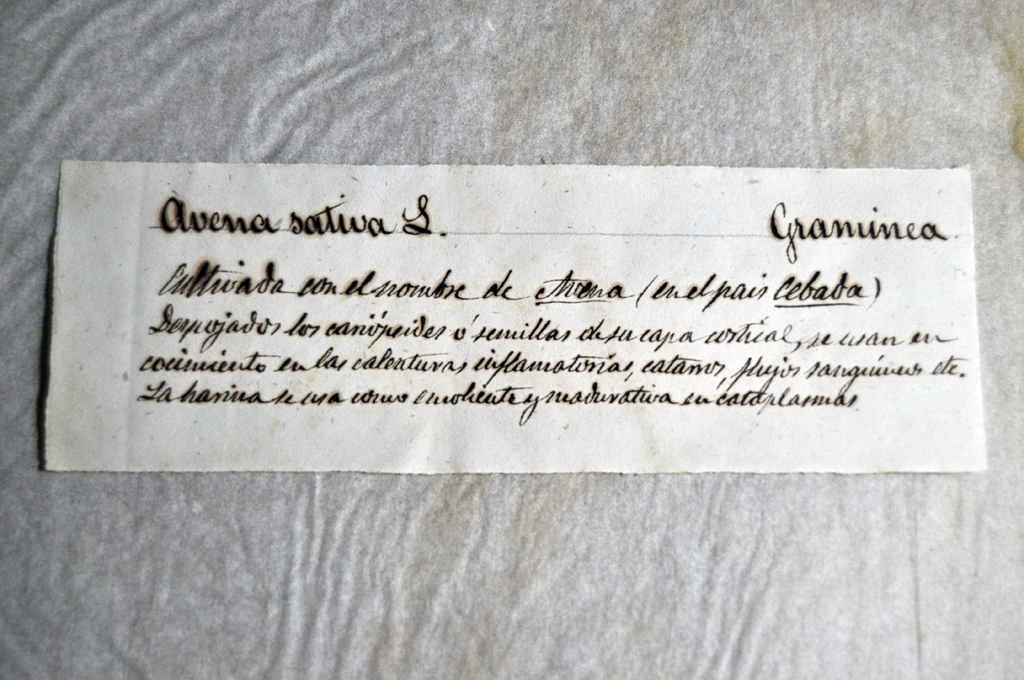 Avena sativa L. Graminea
Cultivada con el nombre de Avena (en el pais Cebada)
Despojados los cariópsides ó semillas de su capa cortical, se usan en
cocimiento en las calenturas inflamatorias, catarros, flujos sanguíneos etc.
La harina se usa como emoliente y madurativa en cataplasmas.